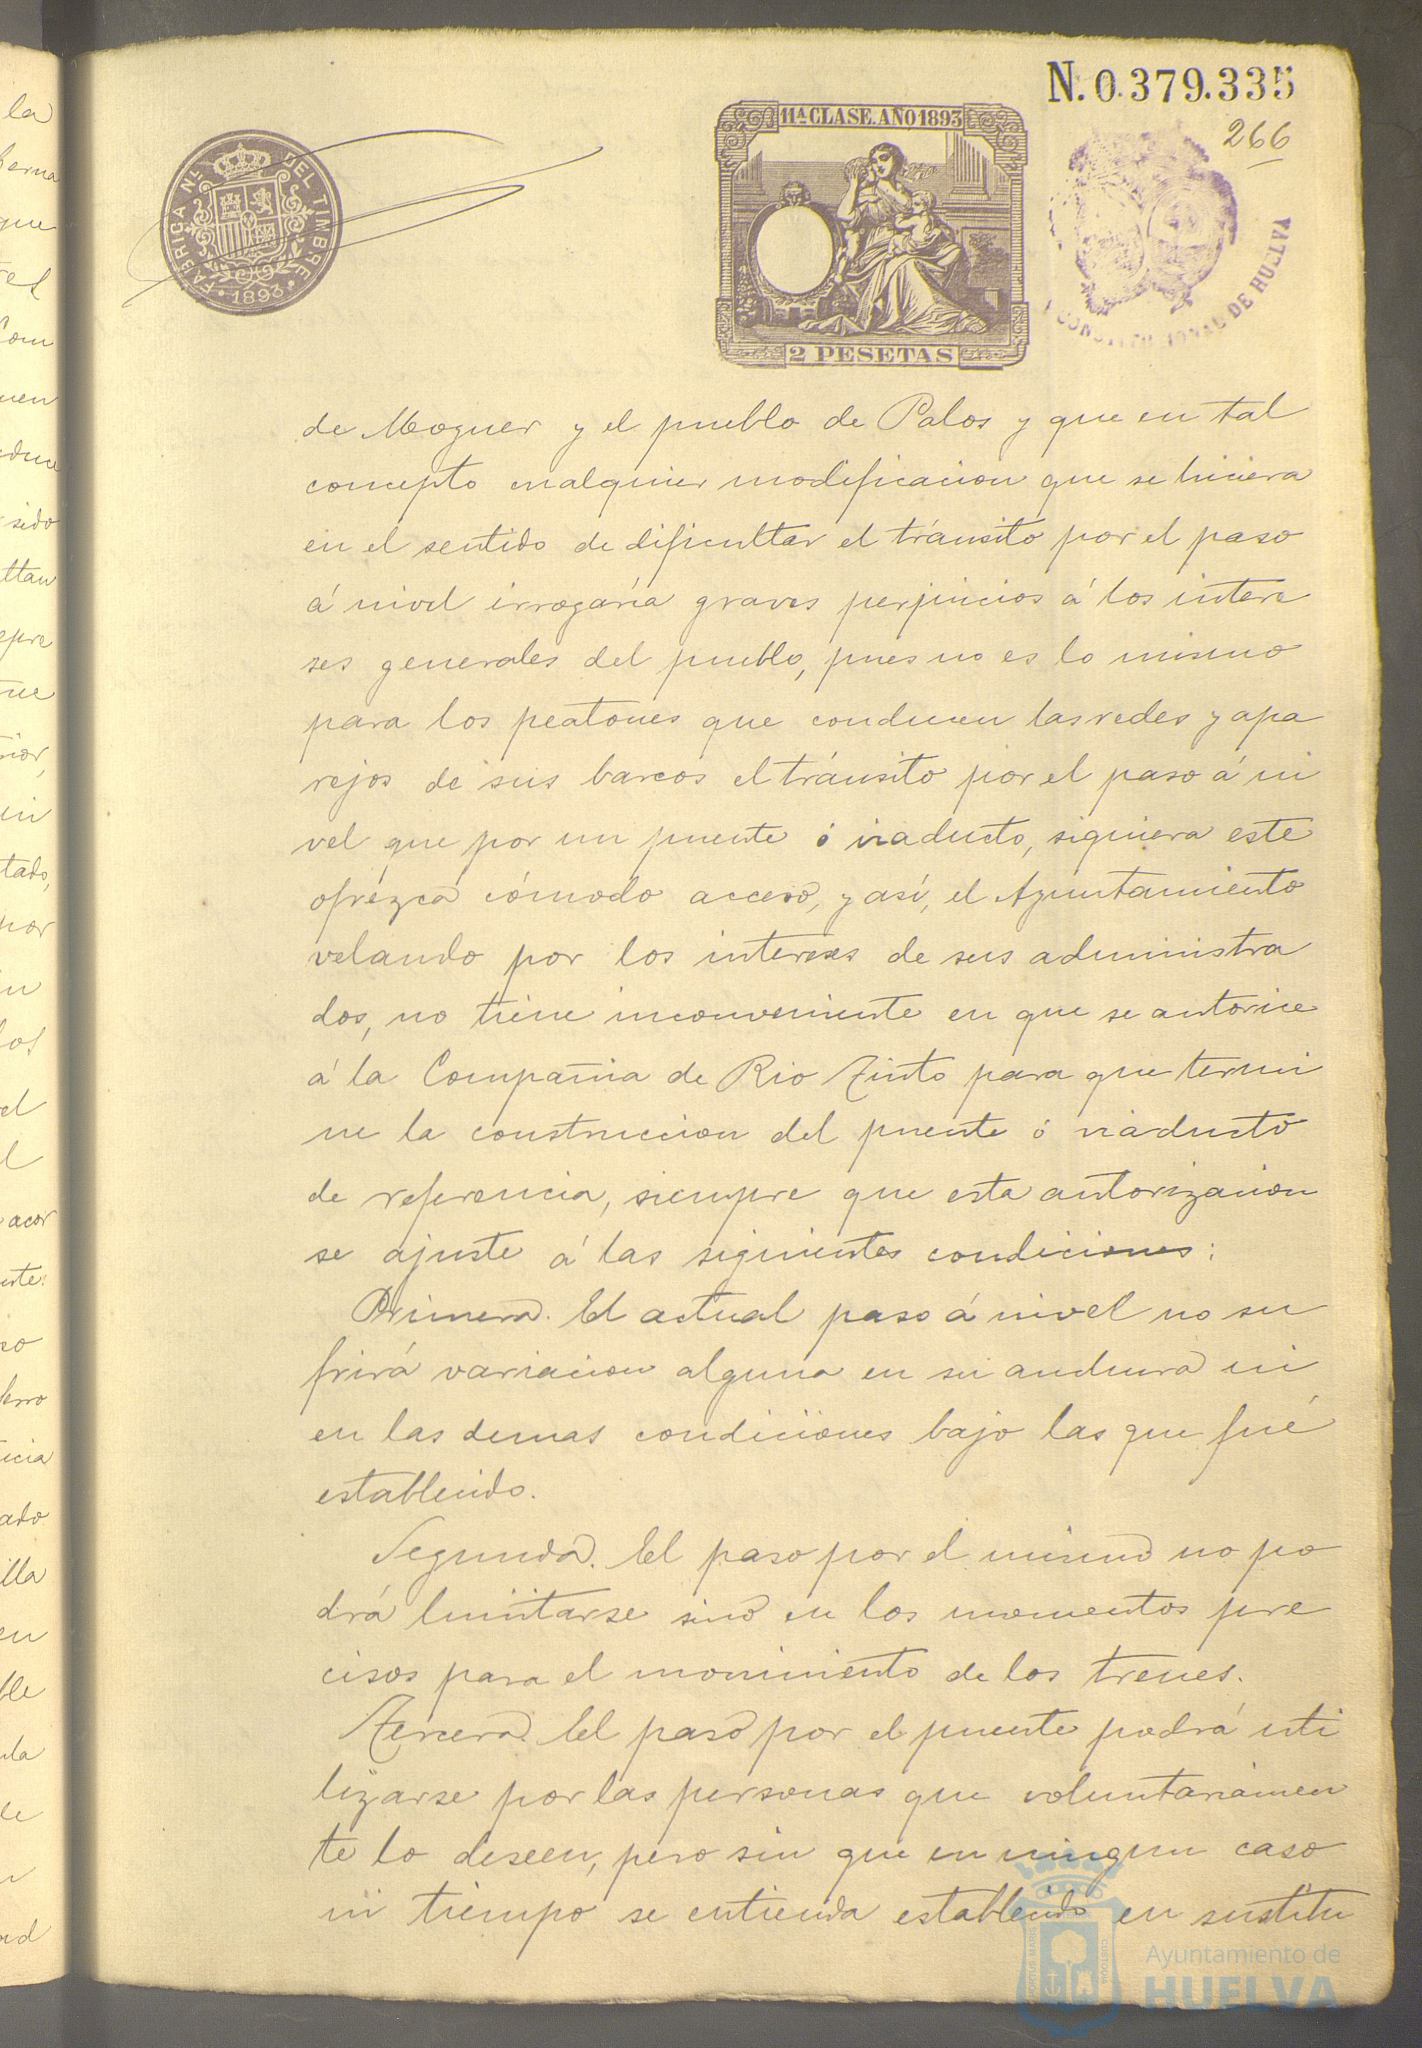 N. 0.379.335
266
11ª CLASE. AÑO 1893
2 PESETAS
FÁBRICA NL DEL TIMBRE
1893
CONSTITUCIONAL DE HUELVA
de Moguer y el pueblo de Palos y que en tal
concepto cualquier modificacion que se hiciera
en el sentido de dificultar el tránsito por el paso
á nivel irrogaría graves perjuicios á los intere
ses generales del pueblo, pues no es lo mismo
para los peatones que conducen las redes y apa
rejos de sus barcos el tránsito por el paso á ni
vel que por un puente ó viaducto, siquiera este
ofrezca cómodo acceso, y así, el Ayuntamiento
velando por los intereses de sus administra
dos, no tiene inconveniente en que se autorice
á la Compañia de Rio Tinto para que termi
ne la construccion del puente ó viaducto
de referencia, siempre que esta autorizacion
se ajuste á las siguientes condiciones:
Primera. El actual paso á nivel no su
frirá variacion alguna en su anchura ni
en las demas condiciones bajo las que fué
establecido.
Segunda. El paso por el mismo no po
drá limitarse sino en los momentos pre
cisos para el movimiento de los trenes.
Tercera. El paso por el puente podrá uti
lizarse por las personas que voluntariamen
te lo deseen, pero sin que en ningun caso
ni tiempo se entienda establecido en sustitu
Ayuntamiento de
HUELVA
la
que
Com
sido
que
tado,
por
en
los
el
acor
so
ado
illa
en
ble
de